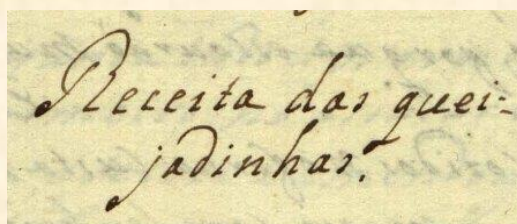 Receita das quei-
jadinhas.